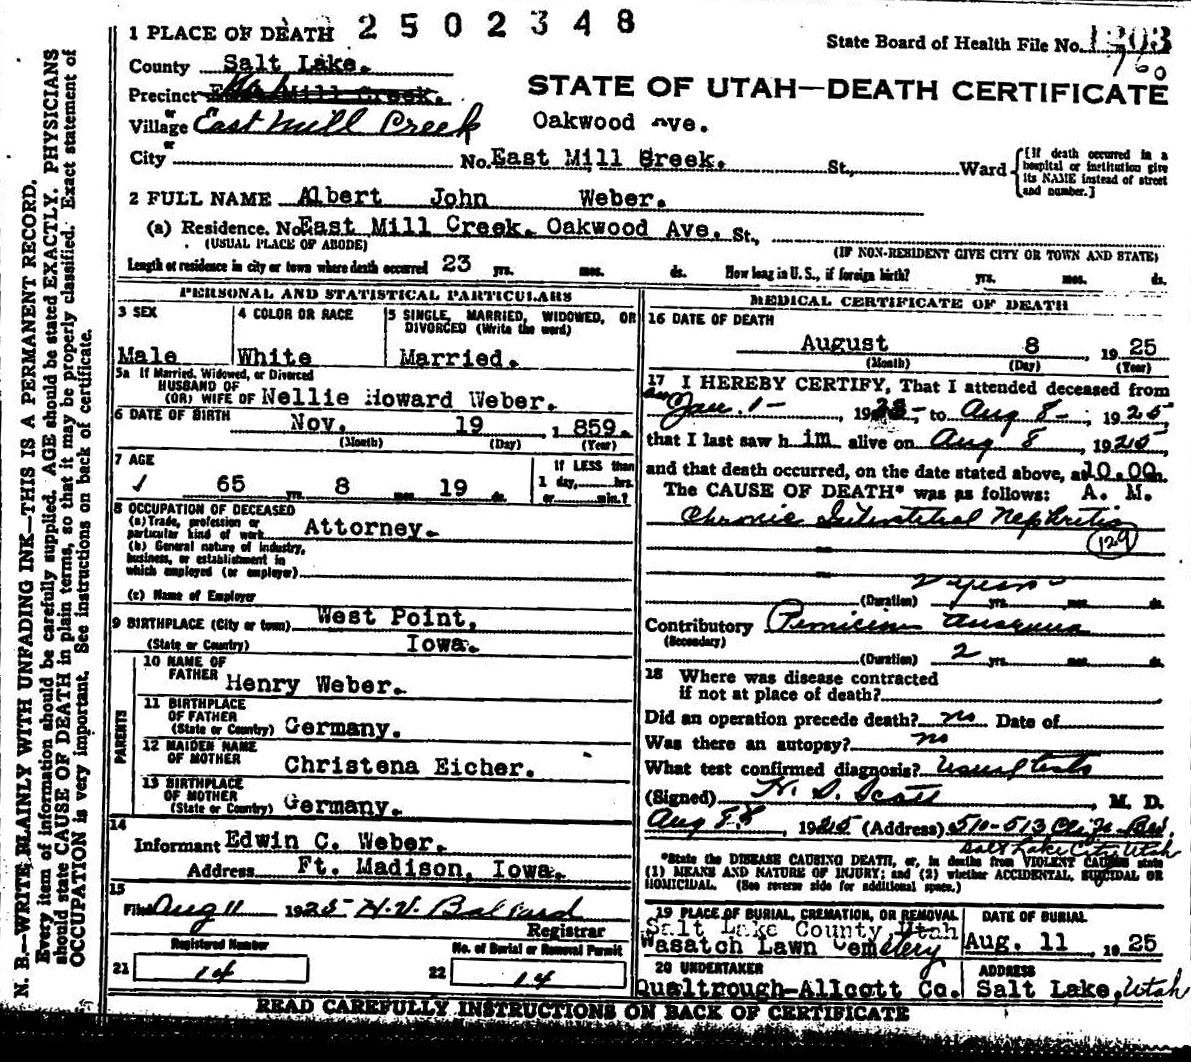 2502348
1 PLACE OF DEATH
State Board of Health File No. 1303
760
County Salt Lake.
Precinct East Mill Creek.
STATE OF UTAH—DEATH CERTIFICATE
or
Village East Mill Creek
Oakwood Ave.
or
City No. East Mill Creek. St., Ward
[If death occurred in a hospital or institution give its NAME instead of street and number.]
2 FULL NAME Albert John Weber.
(a) Residence. No. East Mill Creek. Oakwood Ave. St.,
(USUAL PLACE OF ABODE) (IF NON-RESIDENT GIVE CITY OR TOWN AND STATE)
Length of residence in city or town where death occurred 23 yrs. mos. ds. How long in U. S., if foreign birth? yrs. mos. ds.
PERSONAL AND STATISTICAL PARTICULARS
3 SEX
Male
4 COLOR OR RACE
White
5 SINGLE, MARRIED, WIDOWED, OR
DIVORCED (Write the word)
Married.
5a If Married, Widowed, or Divorced
HUSBAND OF
(OR) WIFE OF Nellie Howard Weber.
6 DATE OF BIRTH Nov. 19 1859.
(Month) (Day) (Year)
7 AGE
65 yrs. 8 mos. 19 ds.
If LESS than
1 day, hrs.
or min.?
8 OCCUPATION OF DECEASED
(a) Trade, profession or
particular kind of work Attorney.
(b) General nature of industry,
business, or establishment in
which employed (or employer)
(c) Name of Employer
9 BIRTHPLACE (City or town) West Point,
(State or Country) Iowa.
PARENTS
10 NAME OF
FATHER Henry Weber.
11 BIRTHPLACE
OF FATHER
(State or Country) Germany.
12 MAIDEN NAME
OF MOTHER Christena Eicher.
13 BIRTHPLACE
OF MOTHER
(State or Country) Germany.
14
Informant Edwin C. Weber.
Address Ft. Madison, Iowa.
15
Filed Aug 11 1925 H. V. Ballard
Registrar
Registered Number
21 14
No. of Burial or Removal Permit
22 14
MEDICAL CERTIFICATE OF DEATH
16 DATE OF DEATH
August 8, 1925
(Month) (Day) (Year)
17 I HEREBY CERTIFY, That I attended deceased from
Jan. 1 - , 1923 - to Aug 8 - , 1925
that I last saw him alive on Aug 8 1925
and that death occurred, on the date stated above, at 10.00 m.
The CAUSE OF DEATH* was as follows: A. M.
Chronic Interstitial Nephritis
129
2 years
(Duration) yrs. mos. ds.
Contributory Pernicious Anaemia
(Secondary)
(Duration) 2 yrs. mos. ds.
18 Where was disease contracted
if not at place of death?
Did an operation precede death? no Date of
Was there an autopsy? no
What test confirmed diagnosis? Usual tests
(Signed) , M. D.
Aug 8, 1925 (Address) 510-513
Salt Lake City Utah
*State the DISEASE CAUSING DEATH, or, in deaths from VIOLENT CAUSES state
(1) MEANS AND NATURE OF INJURY; and (2) whether ACCIDENTAL, SUICIDAL OR
HOMICIDAL. (See reverse side for additional space.)
19 PLACE OF BURIAL, CREMATION, OR REMOVAL
Salt Lake County, Utah
Wasatch Lawn Cemetery
DATE OF BURIAL
Aug. 11 1925
20 UNDERTAKER
Qualtrough-Allcott Co.
ADDRESS
Salt Lake, Utah
READ CAREFULLY INSTRUCTIONS ON BACK OF CERTIFICATE
N. B.—WRITE PLAINLY WITH UNFADING INK—THIS IS A PERMANENT RECORD.
Every item of information should be carefully supplied. AGE should be stated EXACTLY. PHYSICIANS
should state CAUSE OF DEATH in plain terms, so that it may be properly classified. Exact statement of
OCCUPATION is very important. See instructions on back of certificate.